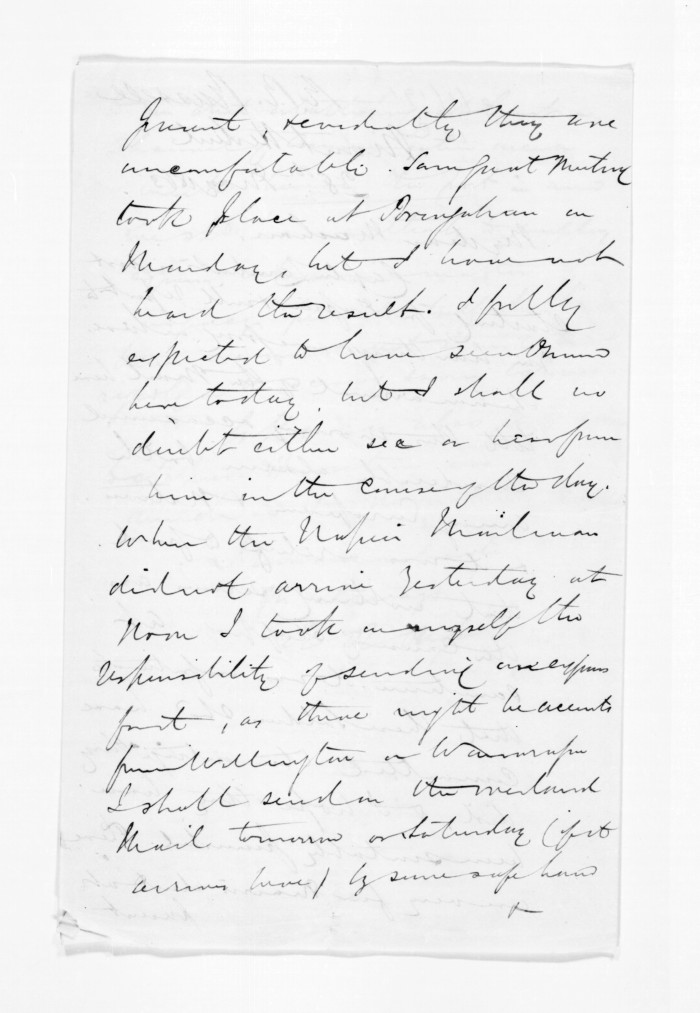 present, & evidently they are
uncomfortable. Some great Meeting
took place at Porangahau on
Monday, but I have not
heard the result. I fully
expected to have seen
here today, but I shall no
doubt either see or hear from
him in the course of the day.
When the Napier Mailman
did not arrive Yesterday at
Noon I took on myself the
responsibility of sending an express
, as there might be accounts
from Wellington or Wairarapa
I shall send on the overland
Mail tomorrow or Saturday (if it
arrives here) by some safe hand